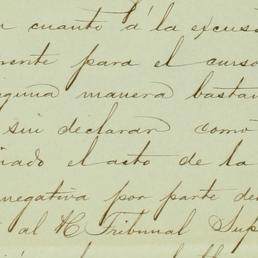 n cuanto á la excusa
rente para el curso
nguna manera bastan
sin declarar como
ñado el acto de la
negativa por parte de
al H Tribunal Sup